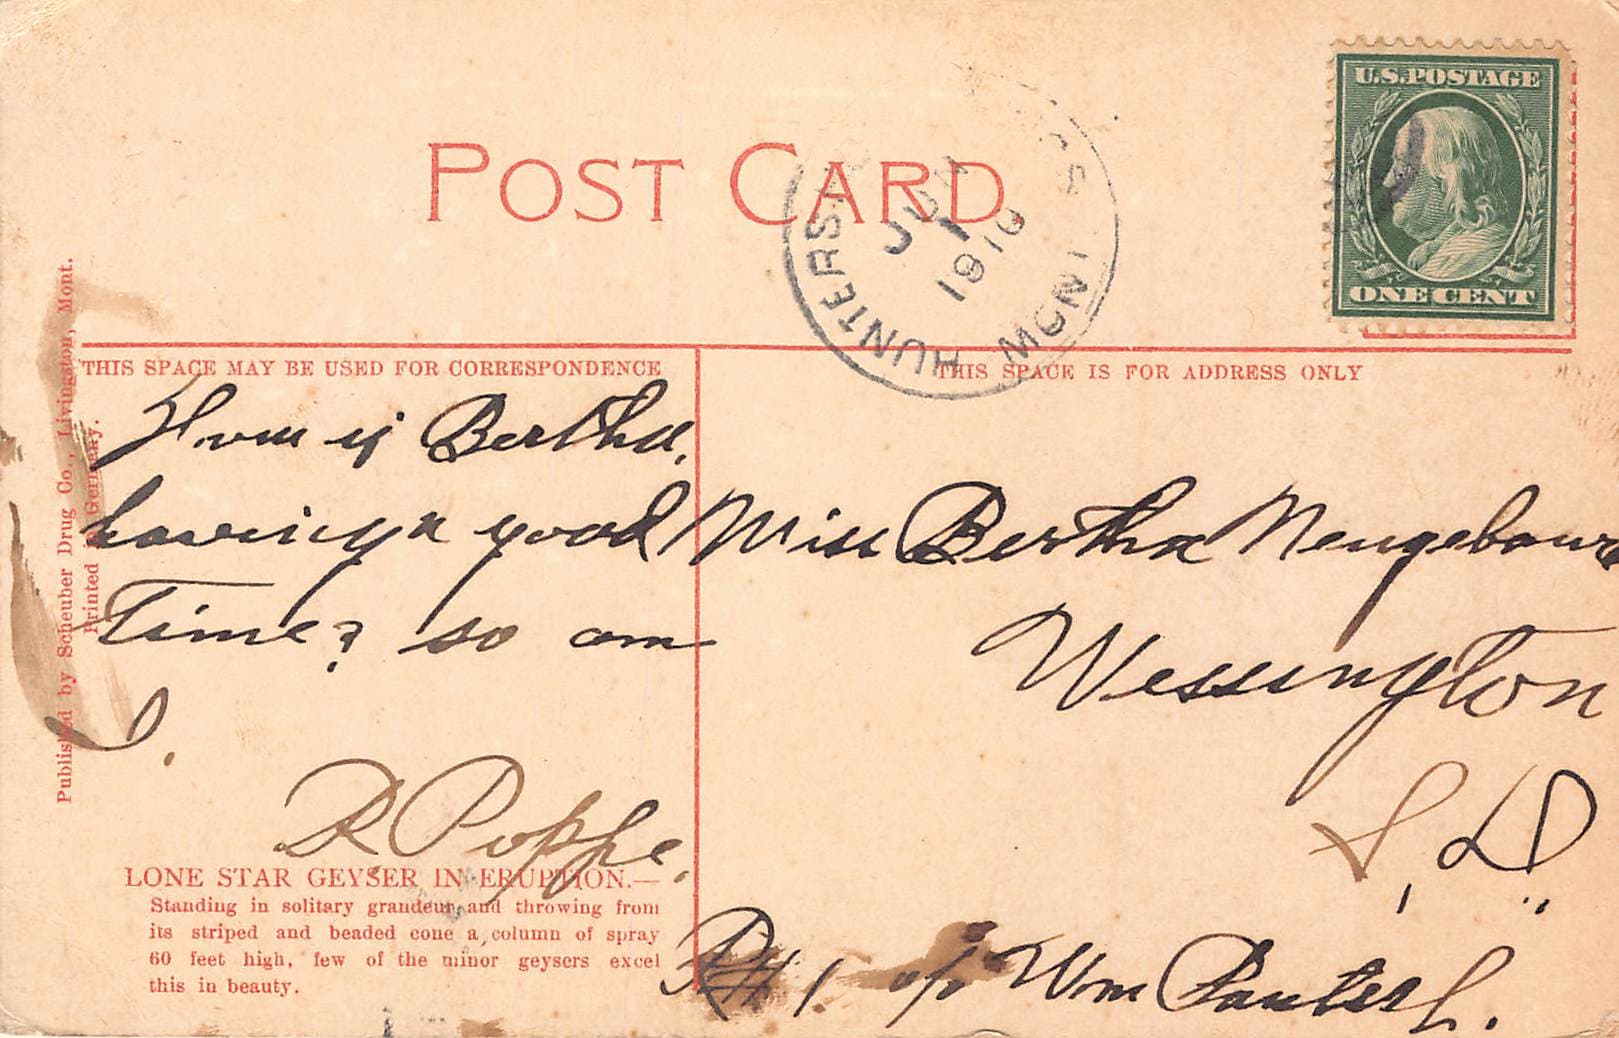 U.S. POSTAGE
ONE CENT
POST CARD
HUNTERS
MONT
JUN
1
1910
THIS SPACE MAY BE USED FOR CORRESPONDENCE
THIS SPACE IS FOR ADDRESS ONLY
Bertha.
having a good
Time? so am
I.
R Poppe.
Miss Bertha Neugebauer
Wessington
S, D..
R#1 c/o Wm
LONE STAR GEYSER IN ERUPTION.—
Standing in solitary grandeur and throwing from
its striped and beaded cone a column of spray
60 feet high, few of the minor geysers excel
this in beauty.
Published by Scheuber Drug Co., Livingston, Mont.
Printed in Germany.